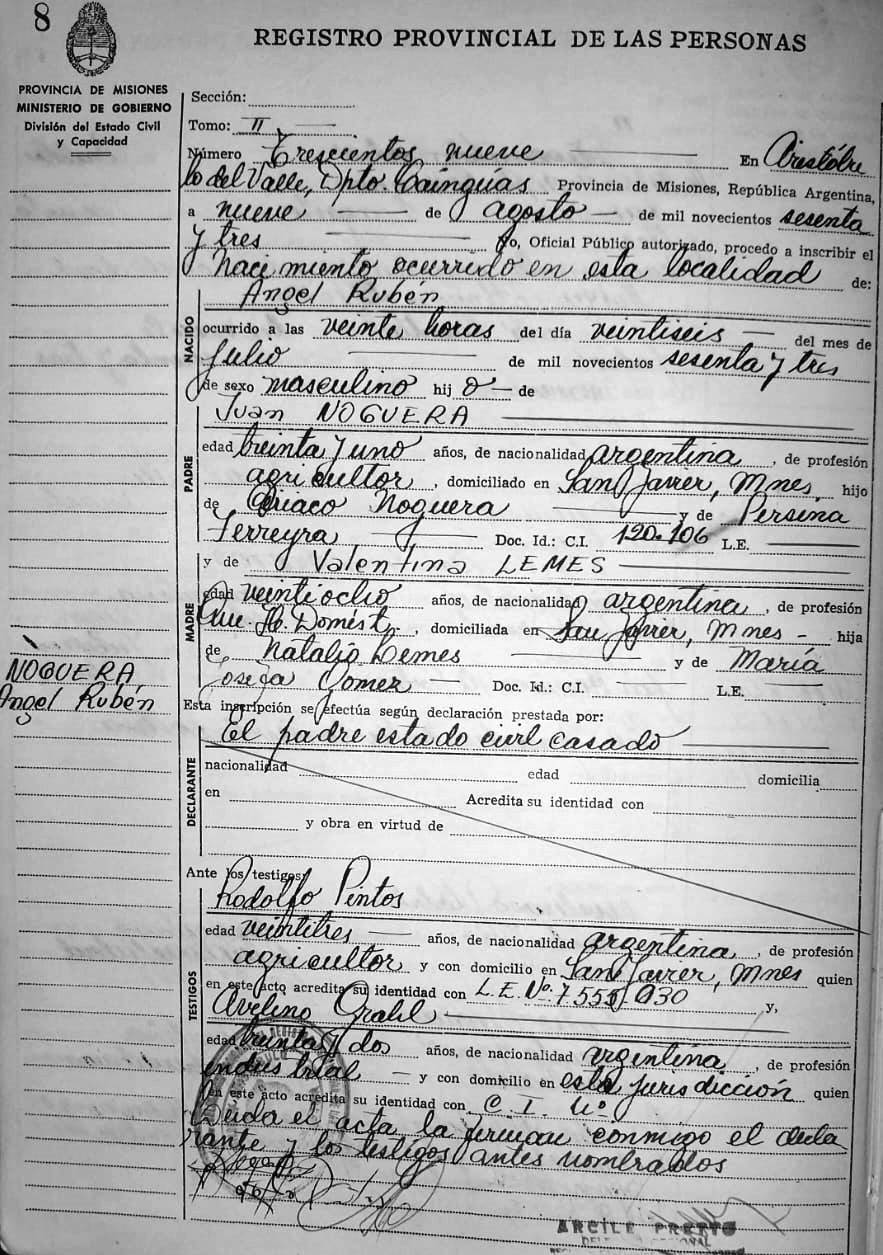 8
REGISTRO PROVINCIAL DE LAS PERSONAS
PROVINCIA DE MISIONES
MINISTERIO DE GOBIERNO
División del Estado Civil
y Capacidad
Sección:
Tomo: II
Número Trescientos nueve En Aristóbu
lo del Valle, Dpto. Cainguás Provincia de Misiones, República Argentina,
a nueve de agosto de mil novecientos sesenta
y tres Yo, Oficial Público autorizado, procedo a inscribir el
nacimiento ocurrido en esta localidad de:
NACIDO
Angel Rubén
ocurrido a las veinte horas del día veintiseis del mes de
Julio de mil novecientos sesenta y tres
de sexo masculino hij o de
PADRE
Juan NOGUERA
edad treinta y uno años, de nacionalidad argentina, de profesión
agricultor, domiciliado en San Javier, Mnes, hijo
de Ciriaco Noguera y de Persina
Ferreyra Doc. Id.: C.I. 120.106 L.E.
MADRE
y de Valentina LEMES
edad veintiocho años, de nacionalidad argentina, de profesión
Que. H. Domést., domiciliada en San Javier, Mnes - hija
de Natalio Lemes y de María
Josefa Gomez Doc. Id.: C.I. L.E.
NOGUERA
Angel Rubén
Esta inscripción se efectúa según declaración prestada por:
El padre estado civil casado
DECLARANTE
nacionalidad edad domicilia
en Acredita su identidad con
y obra en virtud de
Ante los testigos:
TESTIGOS
Rodolfo Pintos
edad veintitres años, de nacionalidad argentina, de profesión
agricultor y con domicilio en San Javier, Mnes quien
en este acto acredita su identidad con L.E. Nº. 7.555.030 y,
Avelino
edad treinta y dos años, de nacionalidad argentina, de profesión
industrial y con domicilio en esta jurisdicción quien
en este acto acredita su identidad con C. I. nº
Leida el acta la firman conmigo el decla
rante y los testigos antes nombrados
ARCILE PRETTO